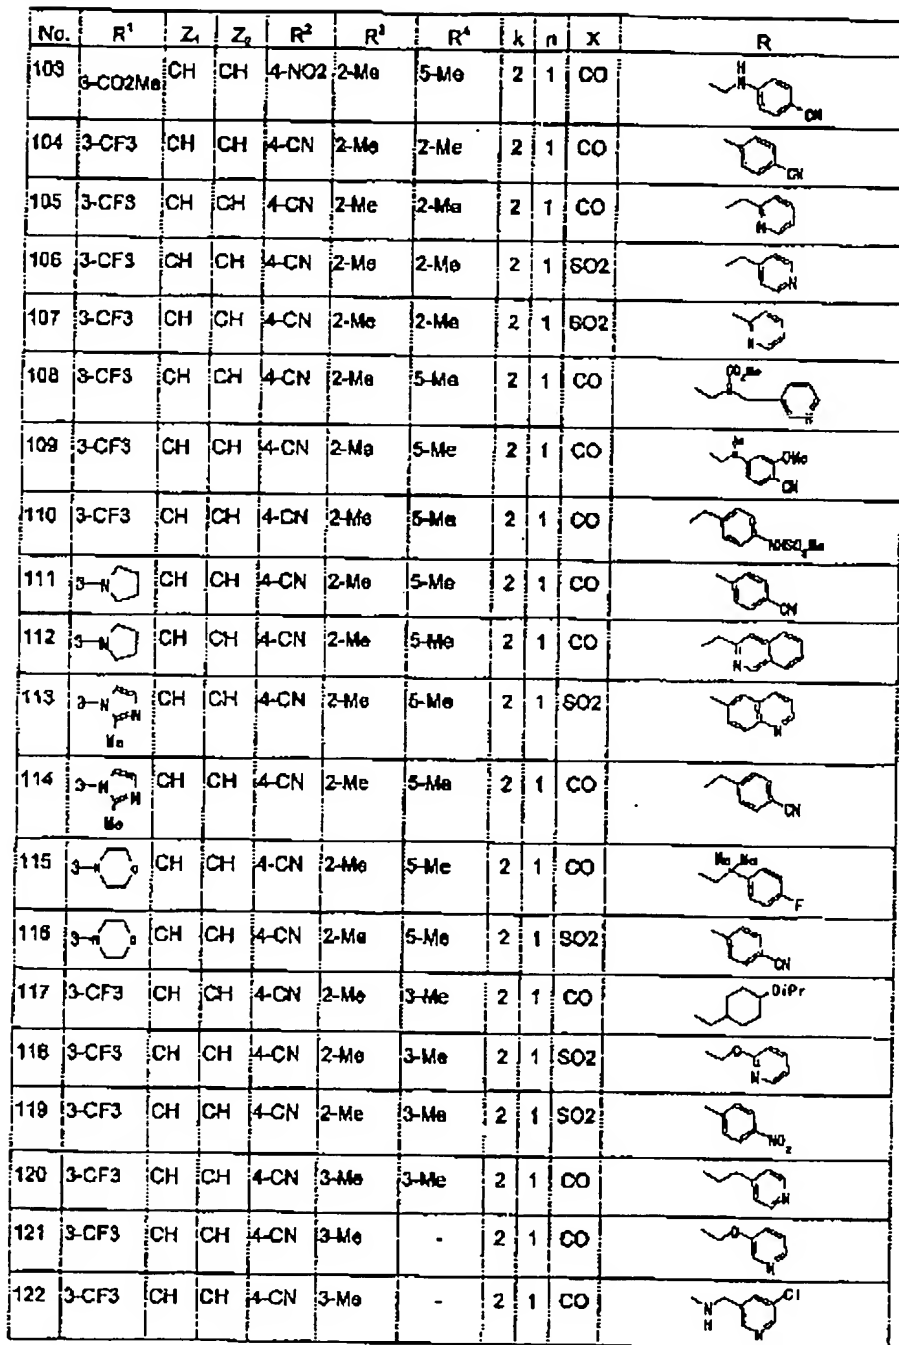 No. R¹ Z₁ Z₂ R² R³ R⁴ k n X R
103 3-CO2Me CH CH 4-NO2 2-Me 5-Me 2 1 CO H N CN
104 3-CF3 CH CH 4-CN 2-Me 2-Me 2 1 CO CN
105 3-CF3 CH CH 4-CN 2-Me 2-Me 2 1 CO N
106 3-CF3 CH CH 4-CN 2-Me 2-Me 2 1 SO2 N
107 3-CF3 CH CH 4-CN 2-Me 2-Me 2 1 SO2 N
108 3-CF3 CH CH 4-CN 2-Me 5-Me 2 1 CO CO₂Me N
109 3-CF3 CH CH 4-CN 2-Me 5-Me 2 1 CO OMe CN
110 3-CF3 CH CH 4-CN 2-Me 5-Me 2 1 CO NHSO₂Me
111 3-N CH CH 4-CN 2-Me 5-Me 2 1 CO CN
112 3-N CH CH 4-CN 2-Me 5-Me 2 1 CO N
113 3-N N Me CH CH 4-CN 2-Me 5-Me 2 1 SO2 N
114 3-N N Me CH CH 4-CN 2-Me 5-Me 2 1 CO CN
115 3-N O CH CH 4-CN 2-Me 5-Me 2 1 CO Me Me F
116 3-N O CH CH 4-CN 2-Me 5-Me 2 1 SO2 CN
117 3-CF3 CH CH 4-CN 2-Me 3-Me 2 1 CO OiPr
118 3-CF3 CH CH 4-CN 2-Me 3-Me 2 1 SO2 O N
119 3-CF3 CH CH 4-CN 2-Me 3-Me 2 1 SO2 NO₂
120 3-CF3 CH CH 4-CN 3-Me 3-Me 2 1 CO N
121 3-CF3 CH CH 4-CN 3-Me - 2 1 CO O N
122 3-CF3 CH CH 4-CN 3-Me - 2 1 CO N H N Cl